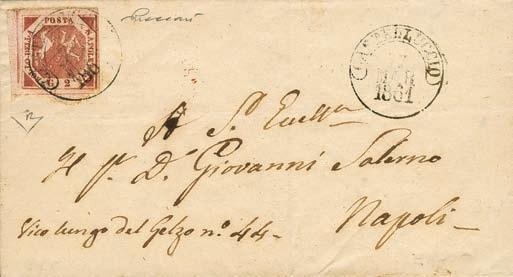 POSTA
NAPOLETANA
BOLLO DELLA
G 2
CASTELLUCCIO
MAR
1861
A S. Ecc.
Il Sr. Dn. Giovanni Salerno
Vico lungo del Gelzo no. 44-
Napoli-